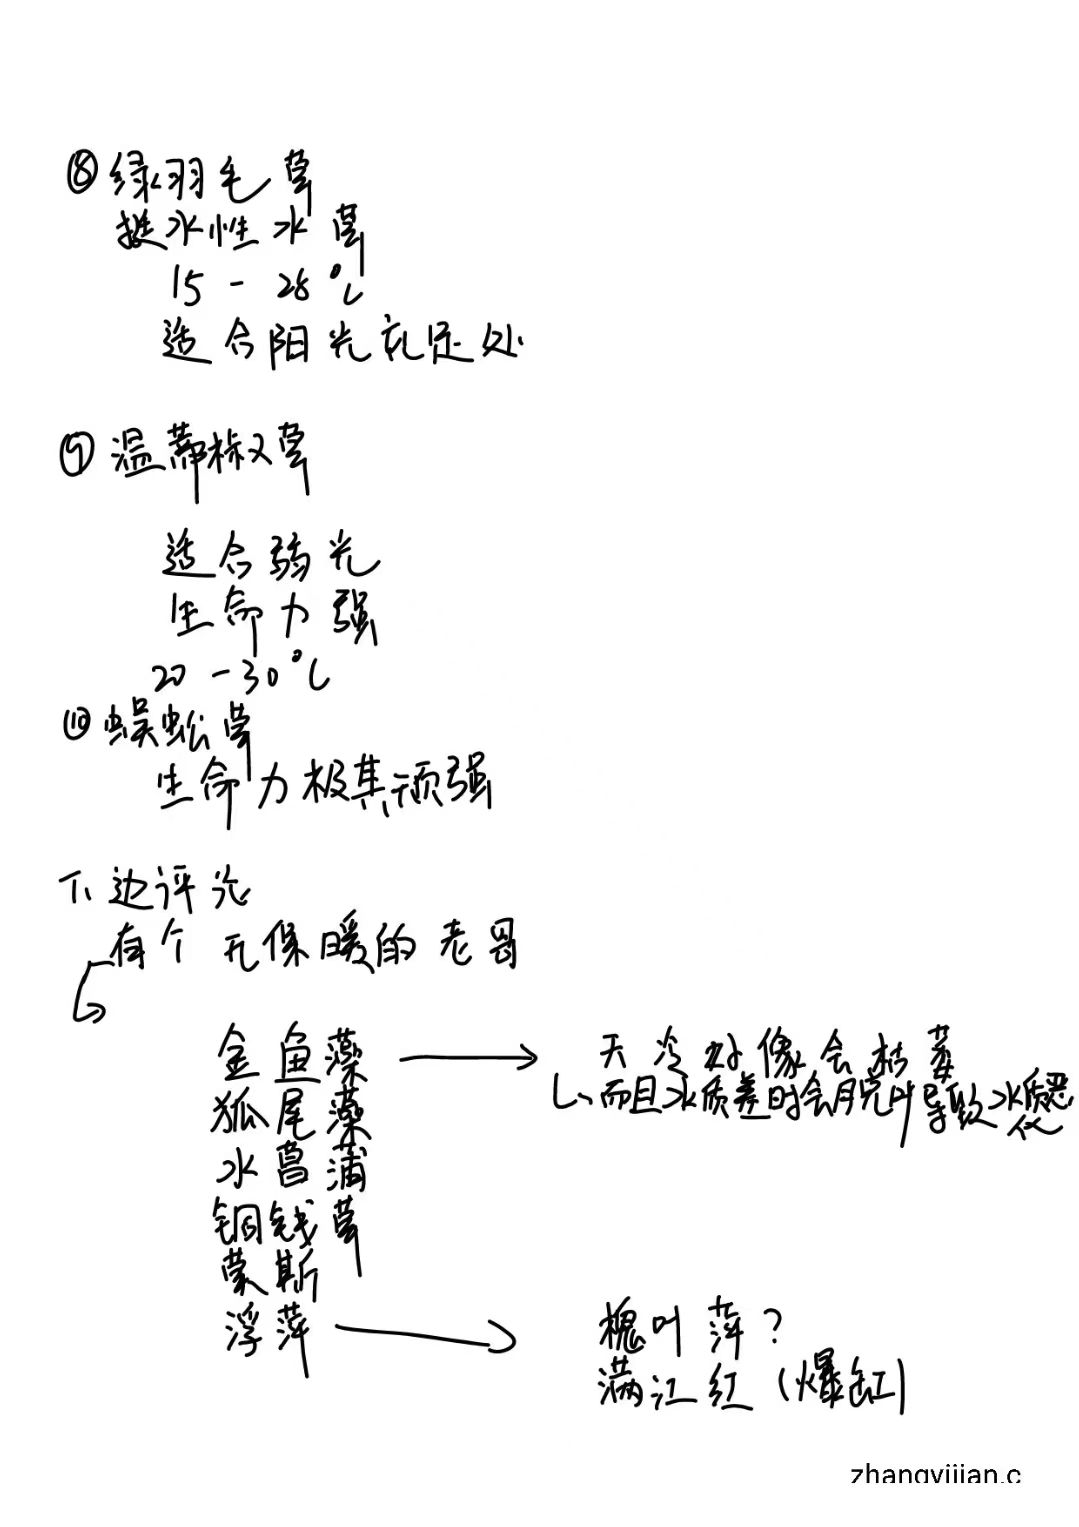 ⑧ 绿羽毛草
挺水性水草
15 - 28°C
适合阳光充足处
⑨ 温蒂椒草
适合弱光
生命力强
20 - 30°C
⑩ 蜈蚣草
生命力极其顽强
下边评论
有个无保暖的老哥
金鱼藻 → 天冷好像会枯萎
而且水质差时会脱叶导致水质恶化
狐尾藻
水菖蒲
铜钱草
莫斯
浮萍 → 槐叶萍?
满江红(爆缸)
zhangyijian.c